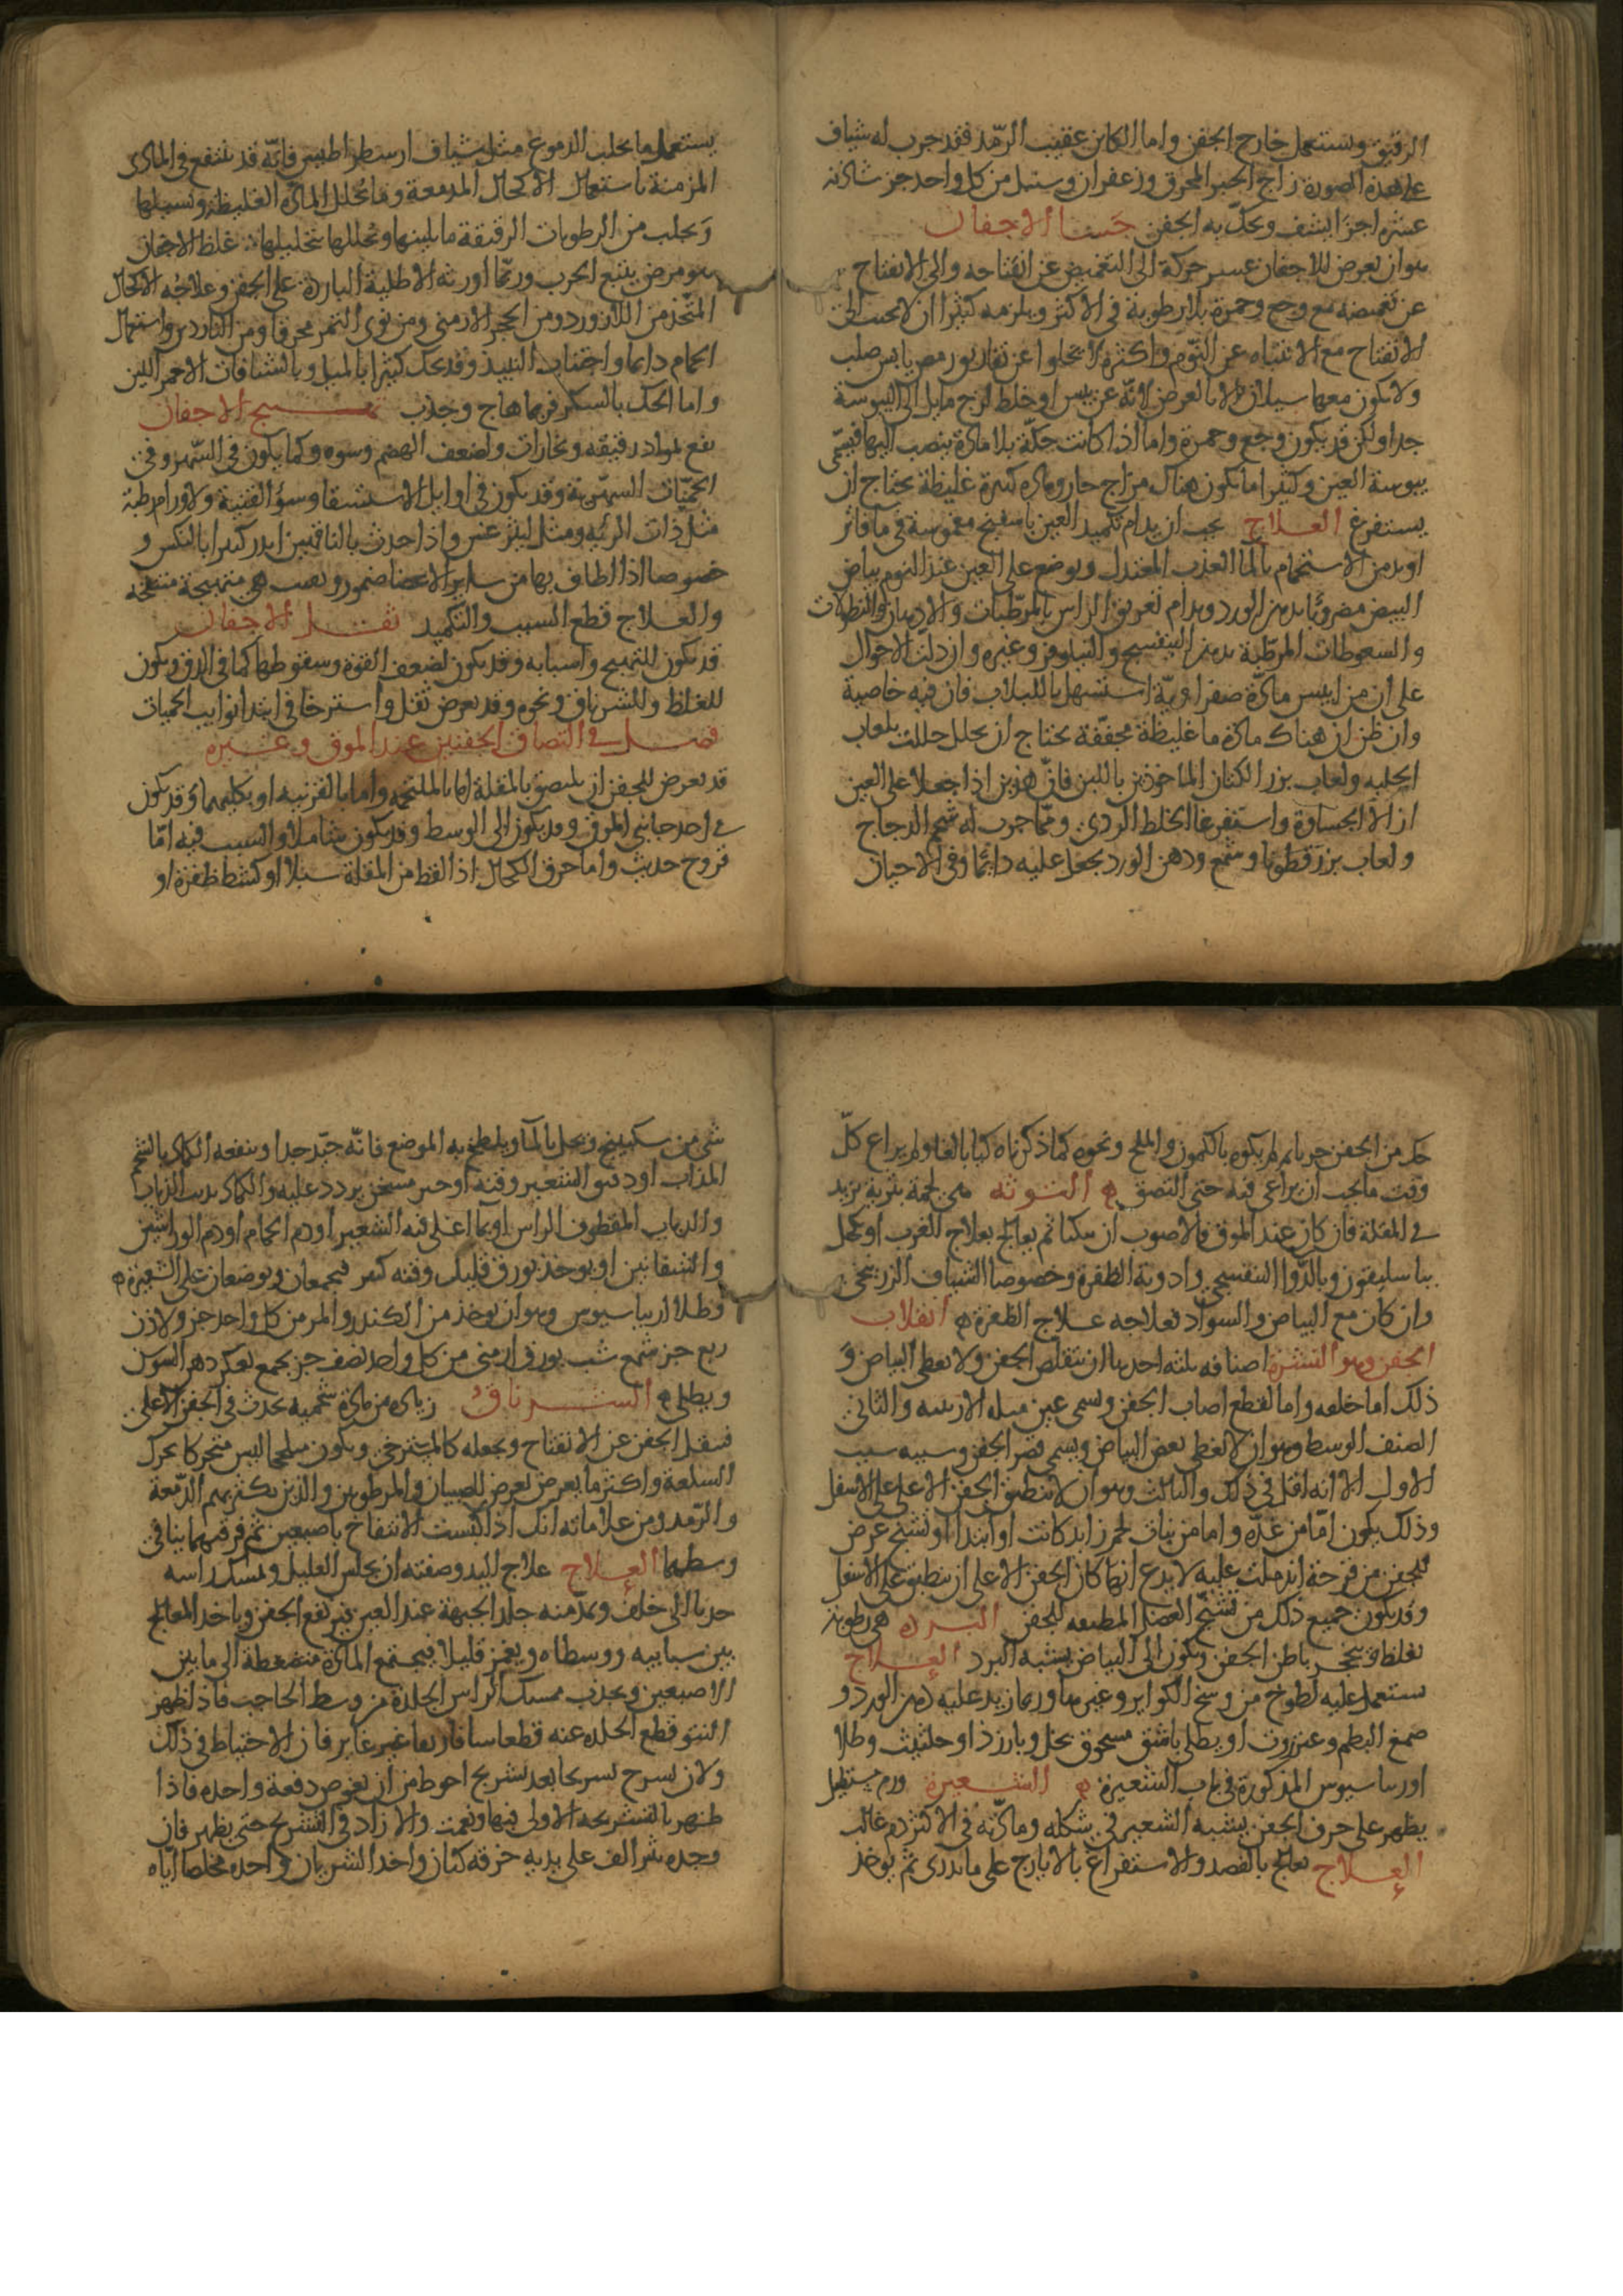 الرقيق ويستعمل خارج الجفن واما الكاين عقيب الرمد فقد جرب له شياف
على هذه الصورة زاج الحبر المحرق وزعفران وسنبل من كل واحد جز شادنه
عشرة اجزا يشيف ويحك به الجفن جسا الاجفان
هو ان يعرض للاجفان عسر حركة الى التغميض عن انفتاحه والى الانفتاح
عن تغميضه مع وجع وحمرة بلا رطوبة في الاكثر ويلزمه كثيرا ان لا يجيب الى
الانفتاح مع الانتباه عن النوم واكثره لا يخلوا عن تفاريق رمص يابس صلب
ولا يكون معها سيلان الا بالعرض لانه عن يبس او خلط لزج مايل الى اليبوسة
جدا ولكن قد يكون وجع وحمرة واما اذا كانت حكة بلا مادة تنصب اليها فيسمى
يبوسة العين وكثيرا ما يكون هناك مزاج حار ومادة كثيرة غليظة يحتاج ان
يستفرغ العلاج يجب ان يدام تكميد العين باسفنج مغموسة في ما فاتر
او يدمن الاستحمام بالما العذب المعتدل ويوضع على العين عند النوم بياض
البيض مضروبا بدهن الورد ويدام تغريق الراس بالمرطبات والادهان والنطولات
والسعوطات المرطبة بدهن البنفسج والنيلوفر وغيره وان دلت الاحوال
على ان مزاييس مادة صفراوية استسهل باللبلاب فان فيه خاصية
وان ظن ان هناك مادة ما غليظة مجففة يحتاج ان يحلل حللت بلعاب
الحلبه ولعاب بزر الكتان الماخوذين باللبن فان هذين اذا جعلا على العين
ازالا الجساوة واستفرغا الخلط الردى ومما جرب له شحم الدجاج
ولعاب بزر قطونا وشمع ودهن الورد يجعل عليه دايما وفى الاحيان
يستعمل ما يجلب الدموع مثل شياف ارسطراطيس فانه قد ينتفع في المادى
المزمنة باستعمال الاكحال المدمعة وما يحلل المادة الغليظة ويسيلها
ويجلب من الرطوبات الرقيقة ما يلينها ويحللها بتحليلها غلظ الاجفان
هو مرض يتبع الجرب وربما اورثه الاطلية الباردة على الجفن وعلاجه الاكحال
المتخذ من اللازورد ومن الحجر الارمني ومن نوى التمر محرقا ومن الناردين واستعمال
الحمام دايما واجتناب النبيذ وقد يحك كثيرا بالميل وبالشيافات الاحمر اللين
واما الحك بالسكر فربما هاج وجذب تهيج الاجفان
يقع لمواد رقيقه وبخارات ولضعف الهضم وسوه وكما يكون في السهر وفى
الحميات السهرية وقد يكون في اوايل الاستسقا وسوء القنية ولاورام رطبة
مثل ذات الريه ومثل ليثرغس واذا حدث بالناقهين انذر كثيرا بالنكس و
خصوصا اذا اطاف بها من ساير الاعضا ضمور وبقيت هي متهيجة منتفخه
والعلاج قطع السبب والتكميد ثقل الاجفان
قد يكون للتهيج واسبابه وقد يكون لضعف القوة وسقوطها كما في الدق ويكون
للغلظ وللشرناق ونحوه وقد يعرض ثقل واسترخا في ابتدا نوايب الحميات
فصل في التصاق الجفنين عند الموق وغيره
قد يعرض للجفن ان يلتصق بالمقلة اما بالملتحمه واما بالقرنيه او بكليهما وقد يكون
في احد جانبي الموق وقد يكون الى الوسط وقد يكون شاملا والسبب فيه اما
قروح حديث واما حرق الكحال اذا القط من المقلة سبلا او كشط ظفرة او
حك من الجفن جربا ثم لم يكوه بالكمون والملح ونحوه كما ذكرناه كيا بالغا ولم يراع كل
وقت ما يجب ان يراعي فيه حتى التصق التوتة هى لحمة بثرية تزيد
في المقلة فان كان عند الموق فالاصوب ان يعالج بعلاج الغرب او يكحل
بباسليقون وبالدوا البنفسجي وادوية الظفرة وخصوصا الشياف الزرنيخى
وان كان مع البياض والسواد فعلاجه علاج الظفرة انقلاب
الجفن وهو الشترة اصنافه ثلثه احدها ان يتقلص الجفن ولا يغطى البياض و
ذلك اما خلقه واما لقطع اصاب الجفن ويسمى عين مثله الارنبيه والثاني
الصنف الوسط وهو ان لا يغطى بعض البياض ويسمى قصر الجفن وسببه سبب
الاول الا انه اقل في ذلك والثالث وهو ان لا ينطبق الجفن الاعلى على الاسفل
وذلك يكون اما من غدة واما من نبات لحم زايد كانت او ابتدا او تشنج عرض
للجفن من قرحة اندملت عليه لا يدع ايها كان الجفن الاعلى ان ينطبق على الاسفل
وقد يكون جميع ذلك من تشنج العضل المطبقه للجفن البرد هى رطوبة
تغلظ وتتحجر باطن الجفن ويكون الى البياض يشبه البرد العلاج
يستعمل عليه لطوخ من وسخ الكواير وغيرها وربما زيد عليه دهن الورد و
صمغ البطم وعنزروت او يطلى باشق مسحوق بخل وبارزذ او حلتيت وطلا
اورساسيوس المذكورة في باب الشعيرة الشعيرة ورم مستطيل
يظهر على حرف الجفن يشبه الشعير في شكله ومادته في الاكثر دم غالب
العلاج يعالج بالفصد والاستفراغ بالايارج على ما تدرى ثم يوخذ
شى من سكبينج ويحل بالما ويلطخ به الموضع فانه جيد جدا وينفعه الكماد بالشحم
المذاب او دقيق الشعير وقنه او خبز مسخن يردد عليه والكماد بذنب الذباب
والذباب المقطوف الراس او بما اغلى فيه الشعير او دم الحمام او دم الوراشين
والشفانين او يوخذ بورق قليل وقنه كثير فيجمعان ويوضعان على الشعيرة
وطلا اورياسيوس وهو ان يوخذ من الكندر والمر من كل واحد جز ولاذن
ربع جز شمع شب بورق ارمني من كل واحد نصف جز يجمع بعكر دهن السوسن
ويطلى الشرناق زياده من مادة شحميه تحدث في الجفن الاعلى
فيثقل الجفن عن الانفتاح ويجعله كالمسترخى ويكون ملتحجا ليس متحركا تحرك
السلعة واكثر ما يعرض يعرض للصبيان والمرطوبين والذين يكثر بهم الدمعة
والرمد ومن علاماته انك اذا كبست الانتفاخ باصبعين ثم فرقتهما نتا في
وسطهما العلاج علاج اليد وصفته ان يجلس العليل ويمسك راسه
جذبا الى خلف ويمد منه جلد الجبهة عند العين فيرتفع الجفن وياخذ المعالج
بين سبابيه ووسطاه ويغمز قليلا فيجتمع المادة منضغطة الى ما بين
الاصبعين ويجذب ممسك الراس الجلدة من وسط الحاجب فاذا ظهر
النتو قطع الجلده عنه قطعا شافا رفيقا غير غاير فان الاحتياط في ذلك
ولان يشرح تشريحا بعد تشريح احوط من ان يغوص دفعة واحده فاذا
ظهر بالتشريحه الاولى فبها ونعمت والا زاد في التشريح حتى يظهر فان
وجده مبترا لف على يديه خرقه كتان واخذ الشرناق واخده مخلصا اياه